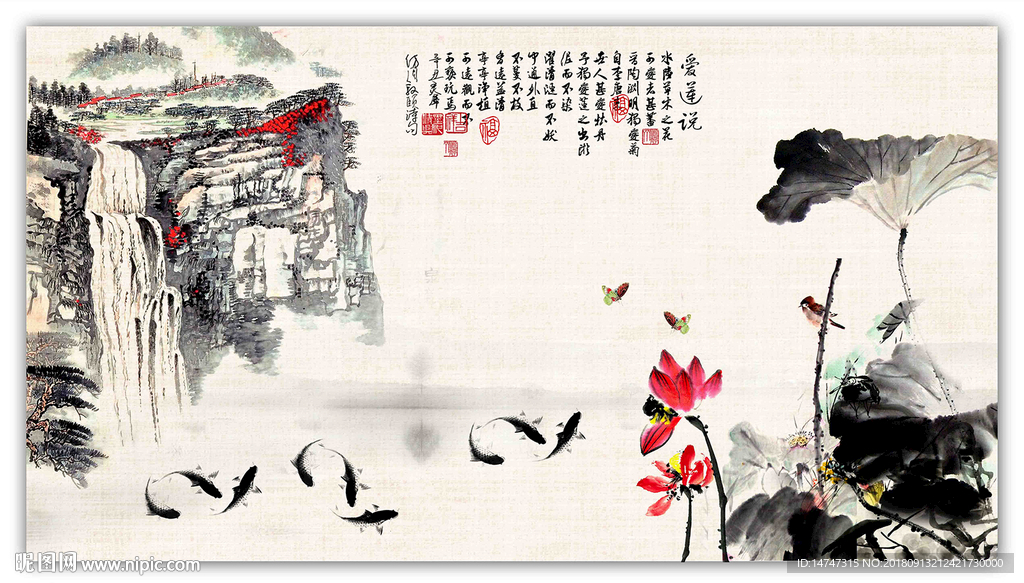 爱莲说
水陆草木之花
可爱者甚蕃
晋陶渊明独爱菊
自李唐
世人甚爱牡丹
予独爱莲之出淤
泥而不染
濯清涟而不妖
中通外直
不蔓不枝
香远益清
亭亭净植
可远观而不
可亵玩焉
昵图网 www.nipic.com
ID:14747315 NO:20180913212421730000